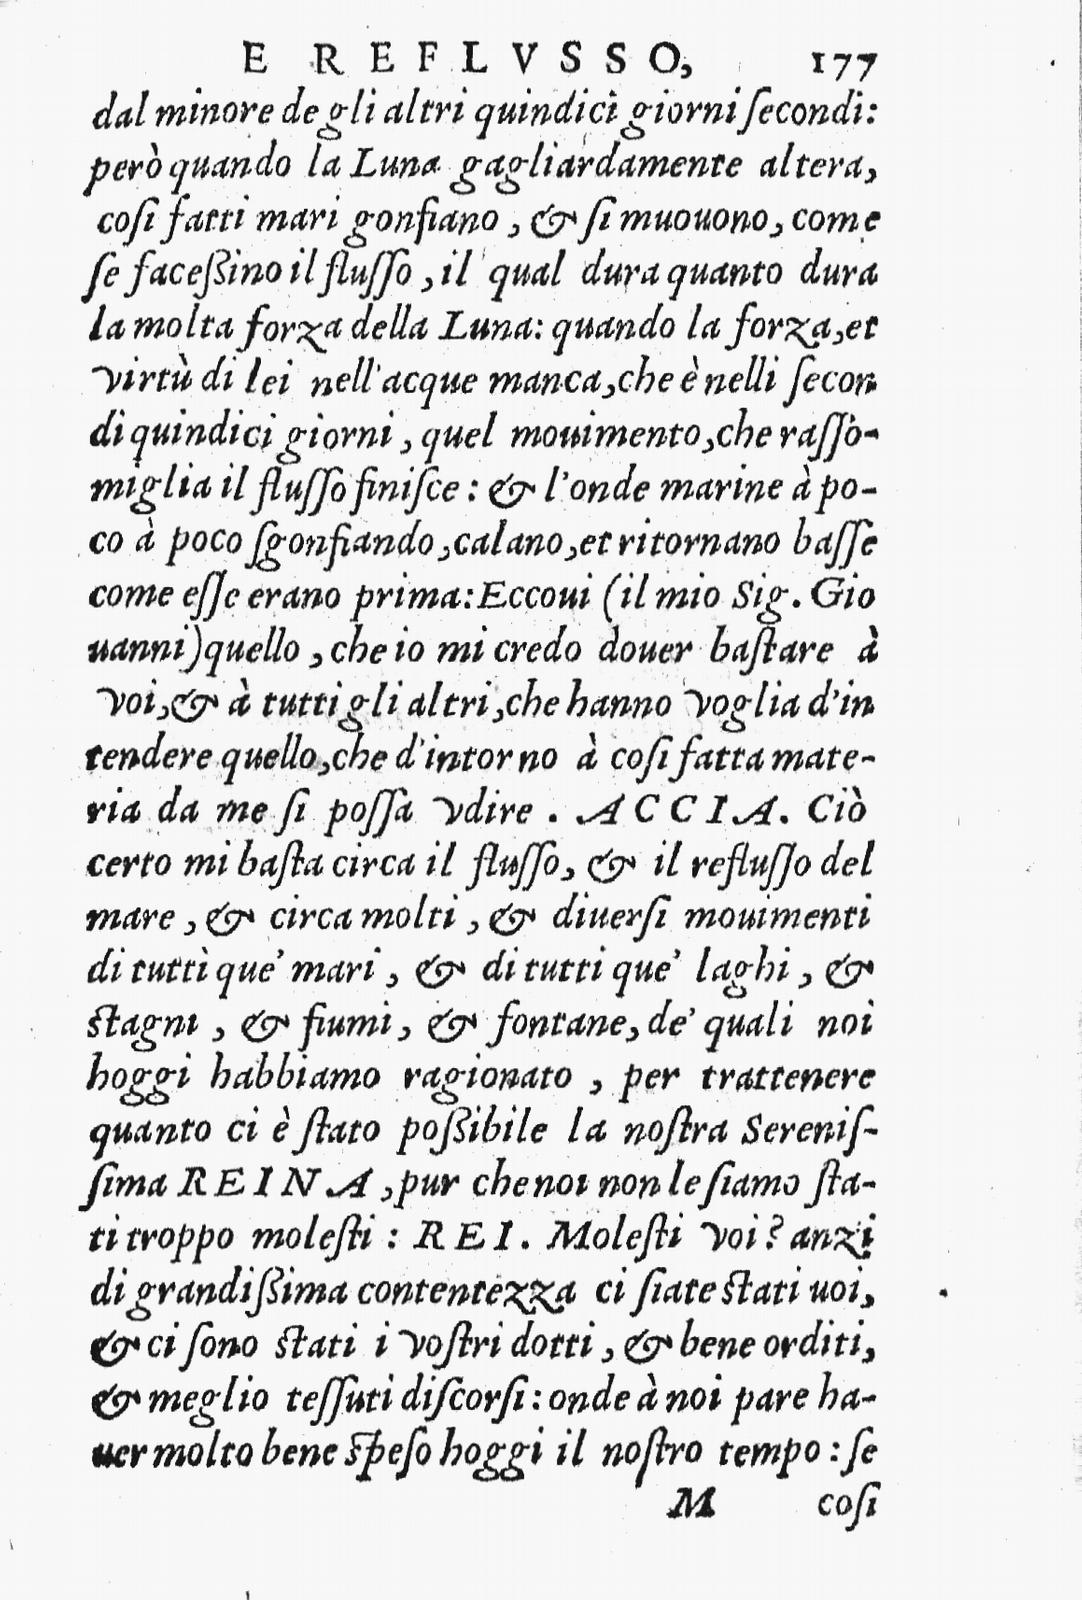 E REFLVSSO, 177
dal minore de gli altri quindici giorni ſecondi:
però quando la Luna gagliardamente altera,
coſi fatti mari gonfiano, & ſi muouono, come
ſe faceßino il fluſſo, il qual dura quanto dura
la molta forza della Luna: quando la forza, et
virtù di lei nell'acque manca, che è nelli ſecon
di quindici giorni, quel mouimento, che raſſo-
miglia il fluſſo finiſce: & l'onde marine à po-
co à poco ſgonfiando, calano, et ritornano baſſe
come eſſe erano prima: Eccoui (il mio Sig. Gio
uanni) quello, che io mi credo douer baſtare à
voi, & à tutti gli altri, che hanno voglia d'in
tendere quello, che d'intorno à coſi fatta mate-
ria da me ſi poſſa vdire. ACCIA. Ciò
certo mi baſta circa il fluſſo, & il refluſſo del
mare, & circa molti, & diuerſi mouimenti
di tutti que' mari, & di tutti que' laghi, &
ſtagni, & fiumi, & fontane, de' quali noi
hoggi habbiamo ragionato, per trattenere
quanto ci è ſtato poßibile la noſtra Sereniſ-
ſima REINA, pur che noi non le ſiamo ſta-
ti troppo moleſti: REI. Moleſti voi? anzi
di grandißima contentezza ci ſiate ſtati uoi,
& ci ſono ſtati i voſtri dotti, & bene orditi,
& meglio teſſuti diſcorſi: onde à noi pare ha-
uer molto bene ſpeſo hoggi il noſtro tempo: ſe
M coſi